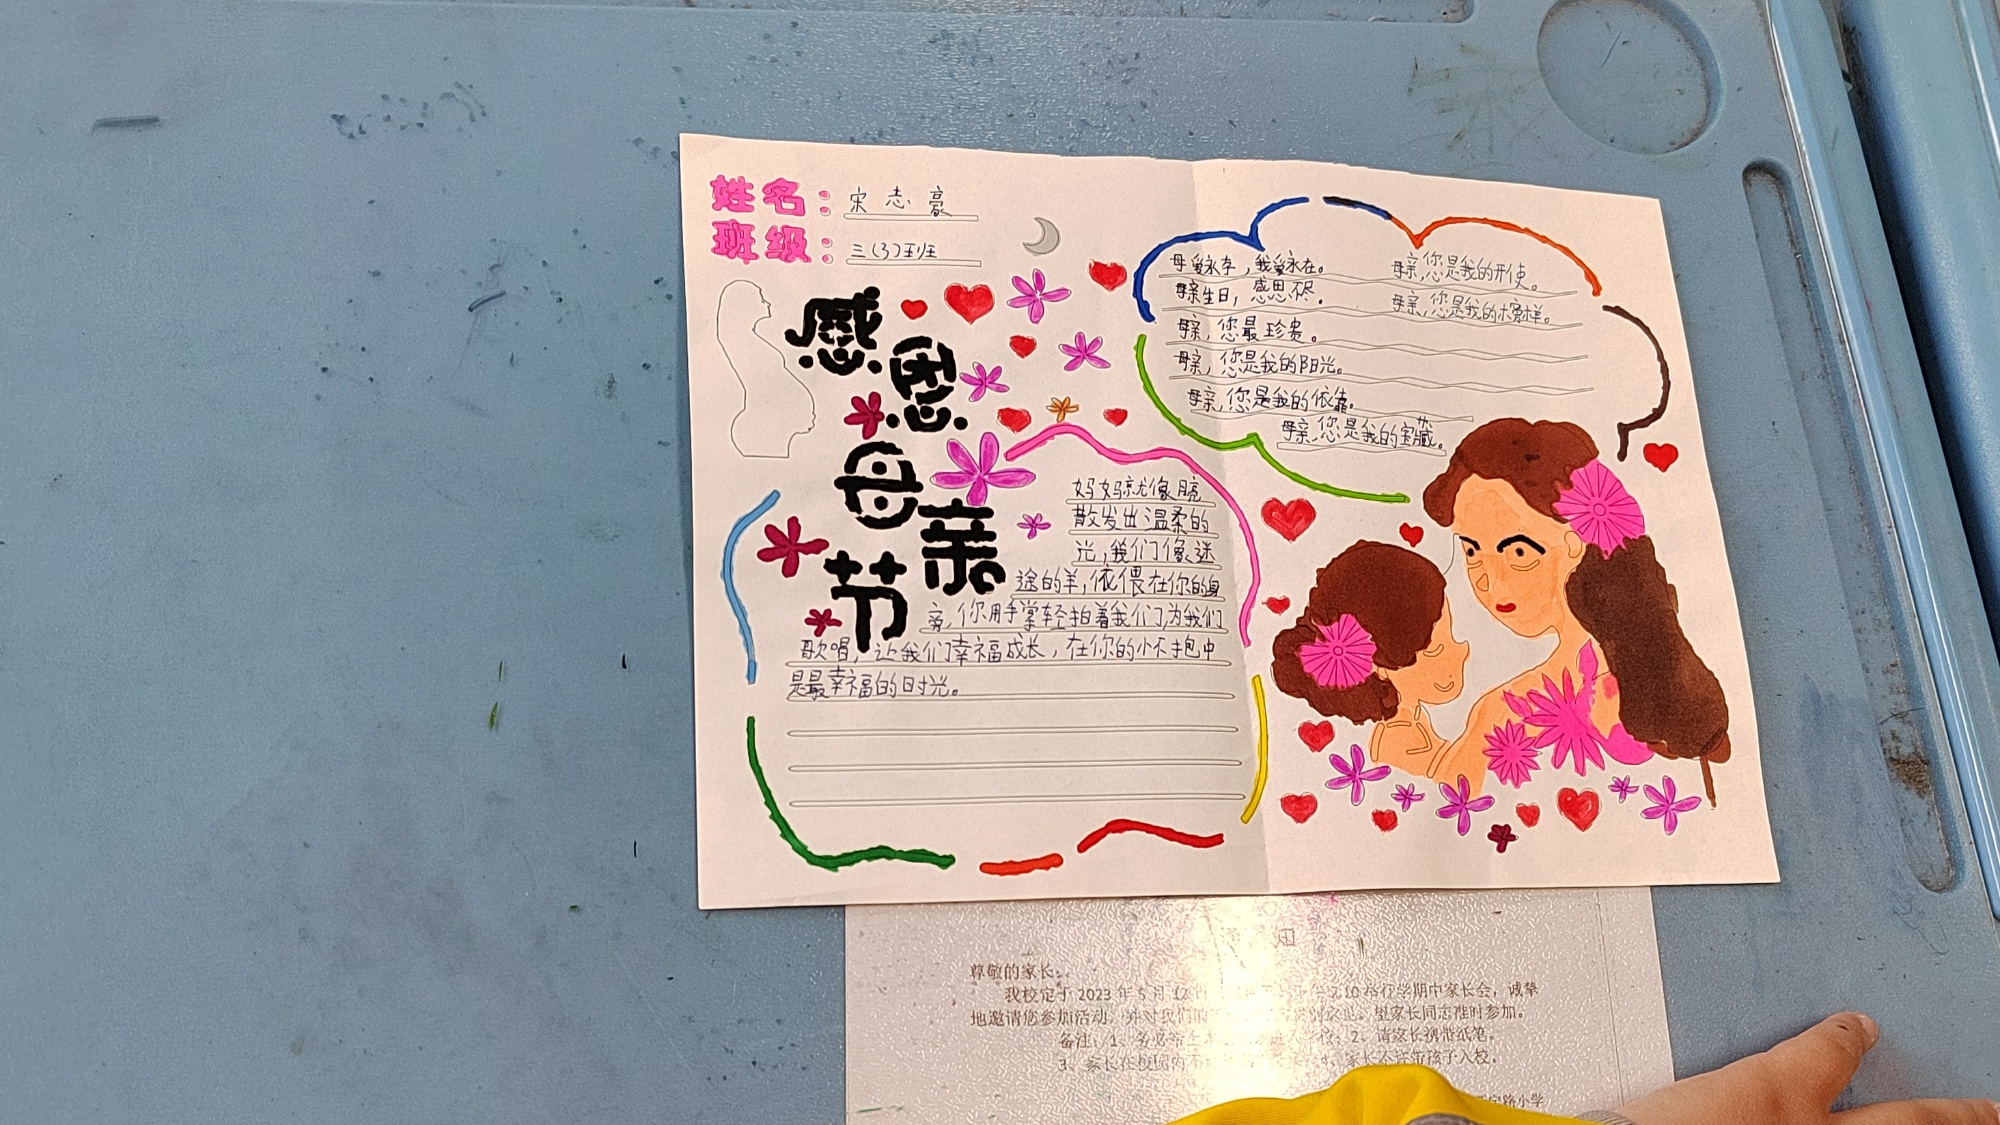 姓名：宋志豪
班级：三(3)班
感恩母亲节
母爱永存，我爱永在。
母亲生日，感恩
母亲，您最珍贵。
母亲，您是我的阳光。
母亲，您是我的依靠。
母亲，您是我的宝藏。
母亲，您是我的天使。
母亲，您是我的榜样。
妈妈就像月亮
散发出温柔的
光，我们像迷
途的羊，依偎在你的身
旁，你用手掌轻拍着我们，为我们
歌唱，让我们幸福成长，在你的怀抱中
是最幸福的时光。
尊敬的家长：
我校定于2023年5月12日 举行学期中家长会，诚挚
地邀请您参加活动，并对我们的 望家长同志准时参加。
备注：1、务必 2、请家长携带纸笔。
3、家长在校园内不 家长不许带孩子入校。
路小学